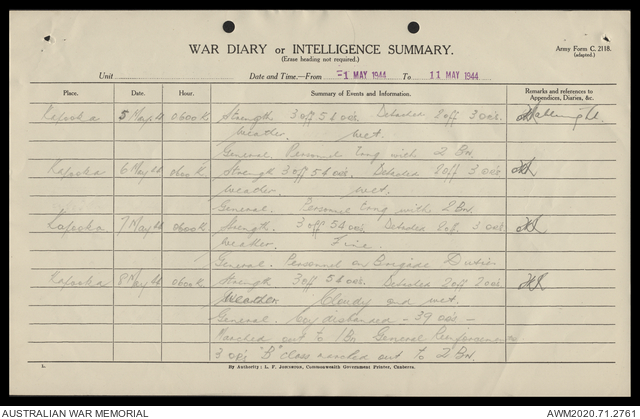 WAR DIARY or INTELLIGENCE SUMMARY.
(Erase heading not required.)
Army Form C. 2118.
(adapted.)
Unit
Date and Time—From -1 MAY 1944 To 11 MAY 1944
Place. Date. Hour. Summary of Events and Information. Remarks and references to Appendices, Diaries, &c.
Kapooka 5 May 44 0600K Strength 3 off 54 ors. Detached 2 off 3 ors.
Weather. wet.
General. Personnel trng with 2 Bn.
Kapooka 6 May 44 0600K Strength 3 off 54 ors. Detached 2 off 3 ors.
Weather. wet.
General. Personnel trng with 2 Bn.
Kapooka 7 May 44 0600K Strength. 3 off 54 ors. Detached 2 off 3 ors.
Weather. Fine.
General. Personnel on Brigade Duties
Kapooka 8 May 44 0600K Strength 3 off 54 ors. Detached 2 off 2 ors.
Weather Cloudy and wet.
General. Coy disbanded - 39 ors -
Marched out to 1 Bn General Reinforcements
3 ors "B" class marched out to 2 Bn.
L.
By Authority: L. F. Johnston, Commonwealth Government Printer, Canberra.
AUSTRALIAN WAR MEMORIAL
AWM2020.71.2761